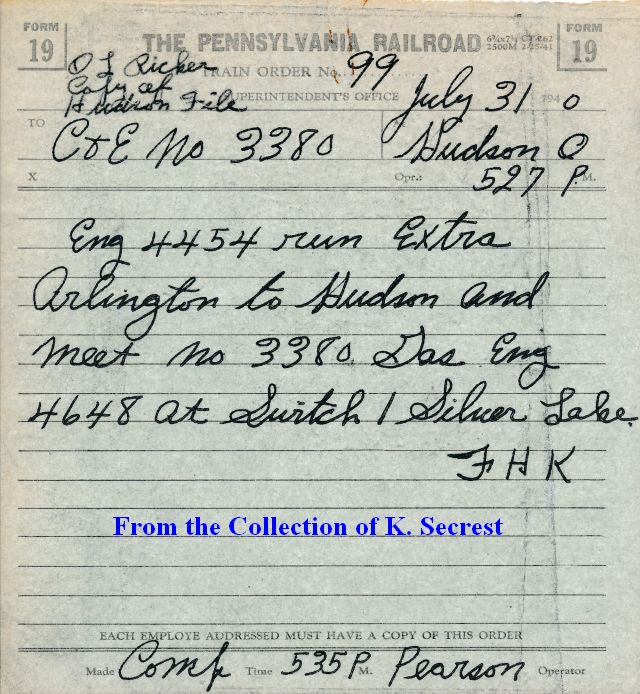 FORM 19
THE PENNSYLVANIA RAILROAD
FORM 19
O L Ricker
Copy at
Hudson File
TRAIN ORDER No. 99
SUPERINTENDENT'S OFFICE July 31 1940
TO C&E No 3380 Hudson O
X Opr.: 527 P.M.
Eng 4454 run Extra
Arlington to Hudson and
meet No 3380 Gas Eng
4648 at Switch 1 Silver Lake
F H K
From the Collection of K. Secrest
EACH EMPLOYE ADDRESSED MUST HAVE A COPY OF THIS ORDER
Made Comp Time 535 P. M. Pearson Operator